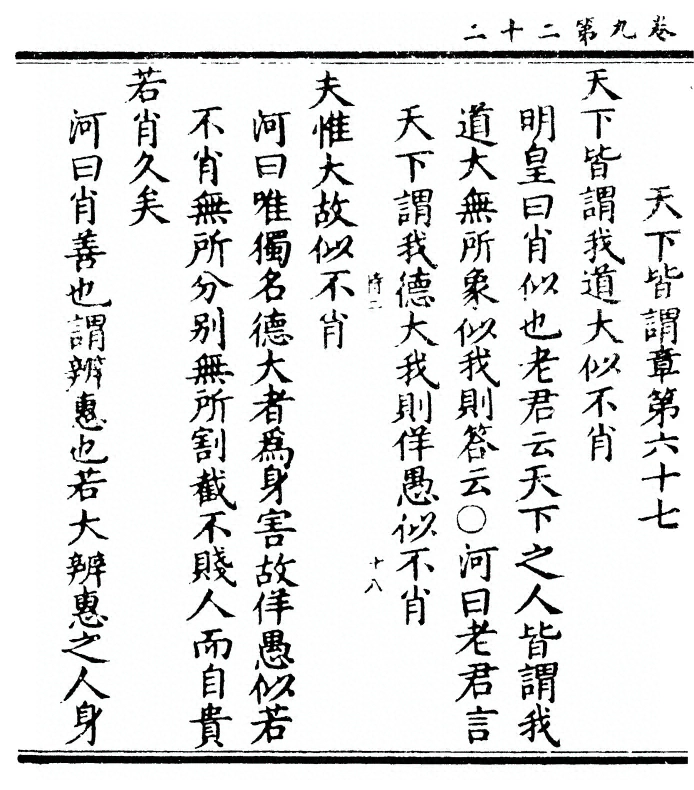 卷九第二十二
天下皆謂章第六十七
天下皆謂我道大似不肖
明皇曰肖似也老君云天下之人皆謂我
道大無所象似我則答云〇河曰老君言
天下謂我德大我則佯愚似不肖
十八
夫惟大故似不肖
河曰唯獨名德大者為身害故佯愚似若
不肖無所分别無所割截不賤人而自貴
若肖久矣
河曰肖善也謂辨惠也若大辨惠之人身